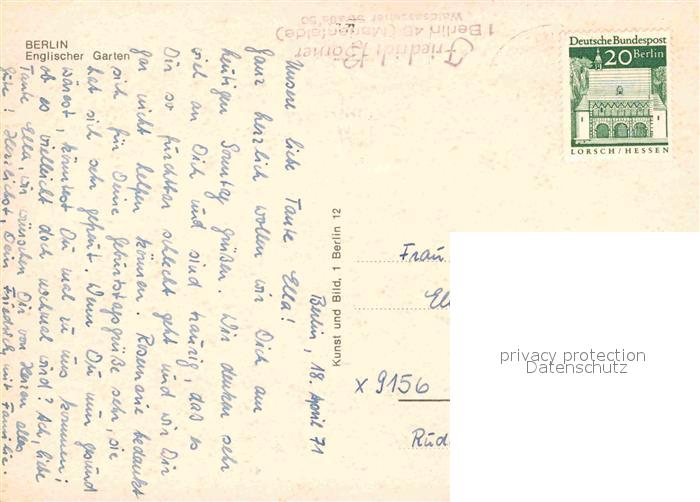 BERLIN
Englischer Garten
Friedrich Börner
1 Berlin 48 (Marienfelde)
Waldsassener Straße 50
Deutsche Bundespost
20 Berlin
LORSCH/HESSEN
Berlin, 18. April 71
Unsere liebe Tante Ella!
Ganz herzlich wollen wir Dich am
heutigen Sonntag grüßen. Wir denken sehr
viel an Dich und sind traurig, das es
Dir so furchtbar schlecht geht und wir Dir
gar nicht helfen können. Rosemarie bedankt
sich für Deine Geburtstagsgrüße sehr, sie
hat sich sehr gefreut. Wenn Du nur gesund
wärest, könntest Du mal zu uns kommen;
ob es vielleicht doch nochmal wird? Ach, liebe
Tante Ella, wir wünschen Dir von Herzen alles
Gute! Herzlichst, Dein Friedrich mit Familie.
Kunst und Bild, 1 Berlin 12
Frau
x 9156
privacy protection
Datenschutz